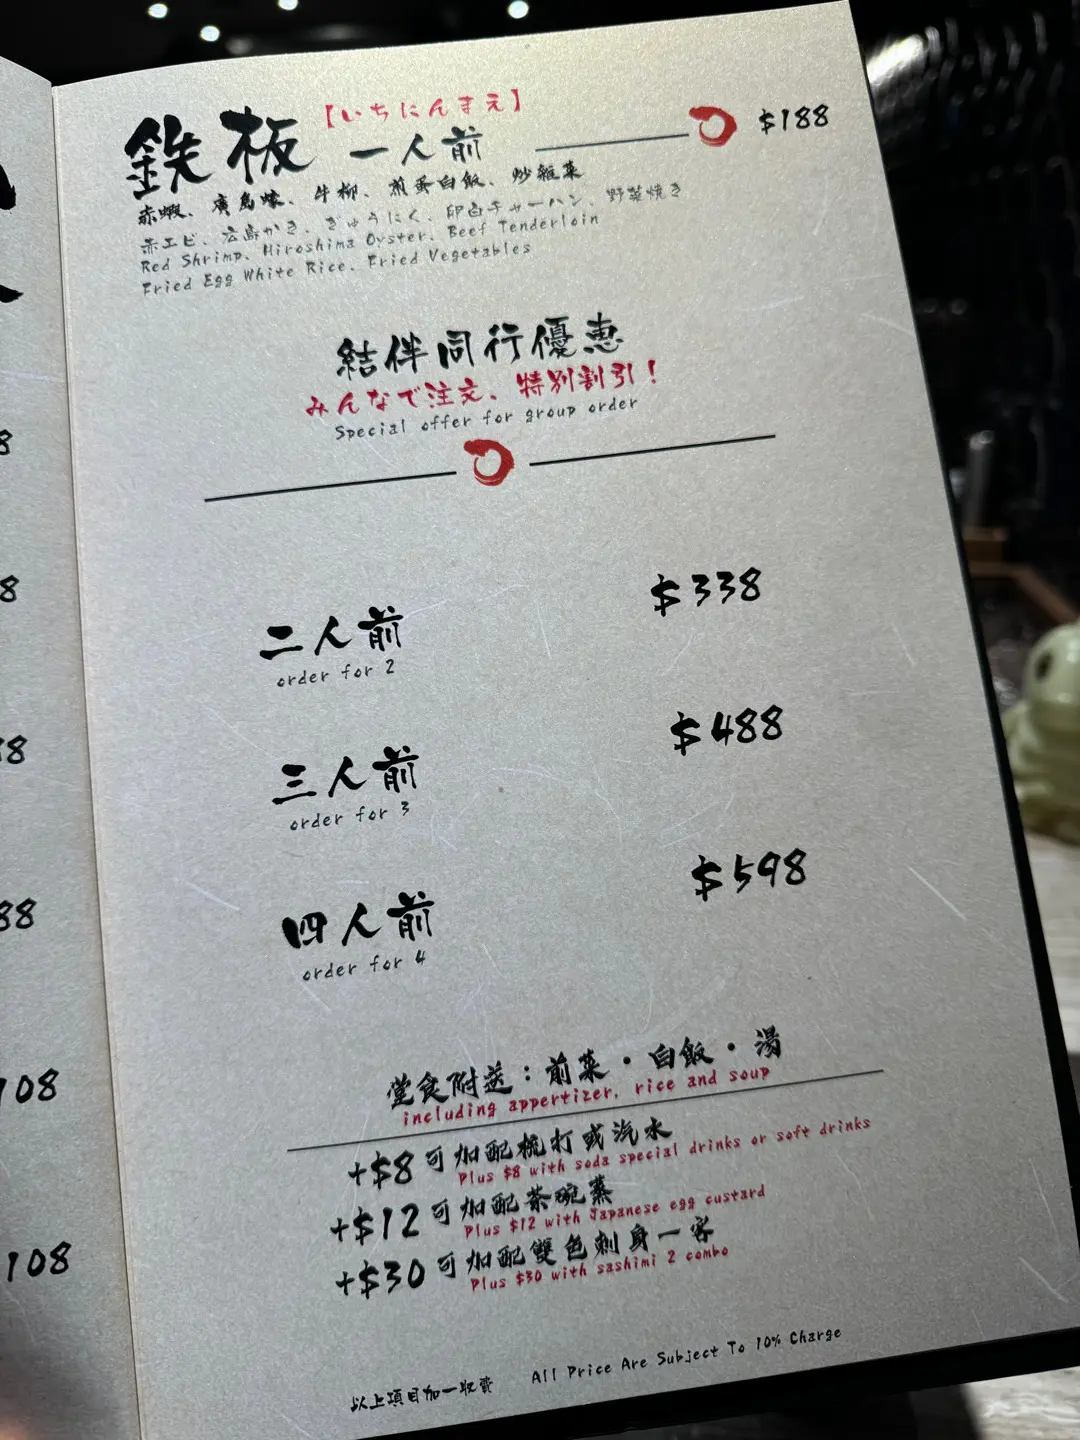 鉄板
【いちにんまえ】
一人前
$188
赤蝦、廣島蠔、牛柳、煎蛋白飯、炒雜菜
赤エビ、広島かき、ぎゅうにく、卵白チャーハン、野菜焼き
Red Shrimp、Hiroshima Oyster、Beef Tenderloin
Fried Egg White Rice、Fried Vegetables
結伴同行優惠
みんなで注文、特別割引！
Special offer for group order
二人前 $338
order for 2
三人前 $488
order for 3
四人前 $598
order for 4
堂食附送：前菜・白飯・湯
including appertizer, rice and soup
+$8 可加配梳打或汽水
Plus $8 with soda special drinks or soft drinks
+$12 可加配茶碗蒸
Plus $12 with Japanese egg custard
+$30 可加配雙色刺身一客
Plus $30 with sashimi 2 combo
以上項目加一收費 All Price Are Subject To 10% Charge
8
8
88
108
108